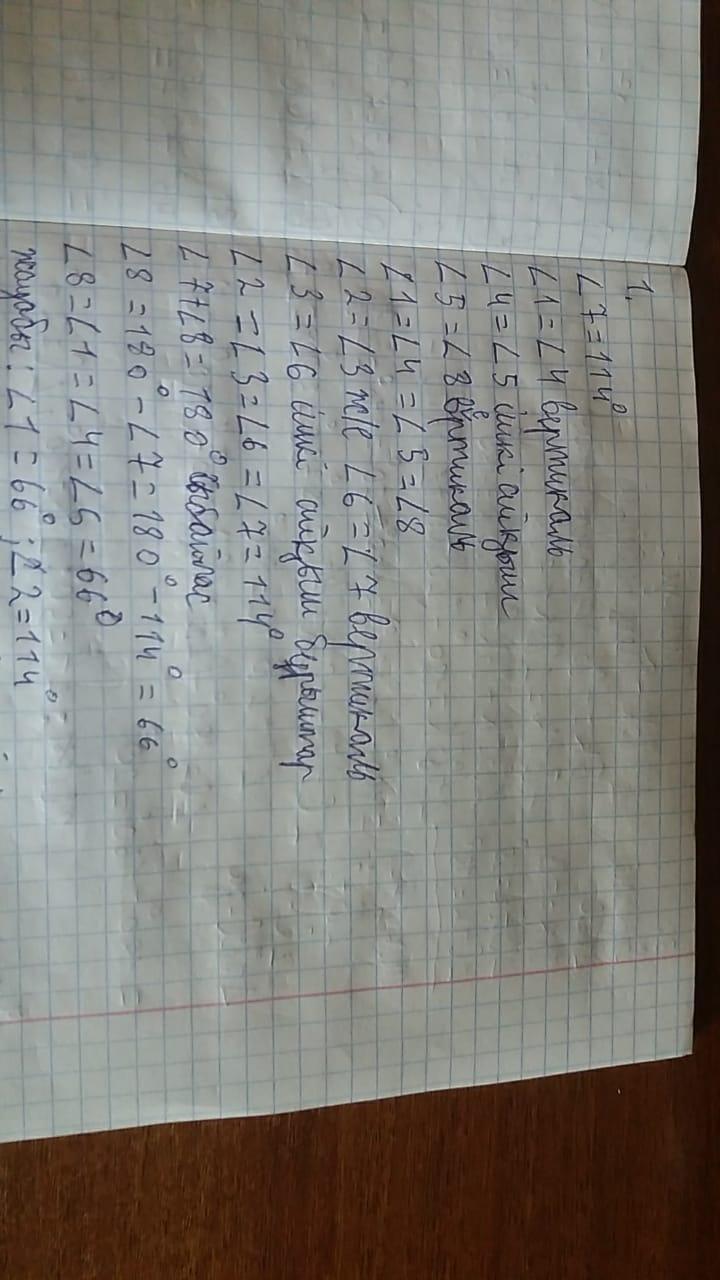 1.
∠7=114°
∠1=∠4 вертикаль
∠4=∠5 ішкі айқыш
∠5=∠8 вертикаль
∠1=∠4=∠5=∠8
∠2=∠3 т/е ∠6=∠7 вертикаль
∠3=∠6 ішкі айқыш бұрыштар
∠2=∠3=∠6=∠7=114°
∠7+∠8=180° сыбайлас
∠8=180°-∠7=180°-114°=66°
∠8=∠1=∠4=∠5=66°
жауабы: ∠1=66°; ∠2=114°